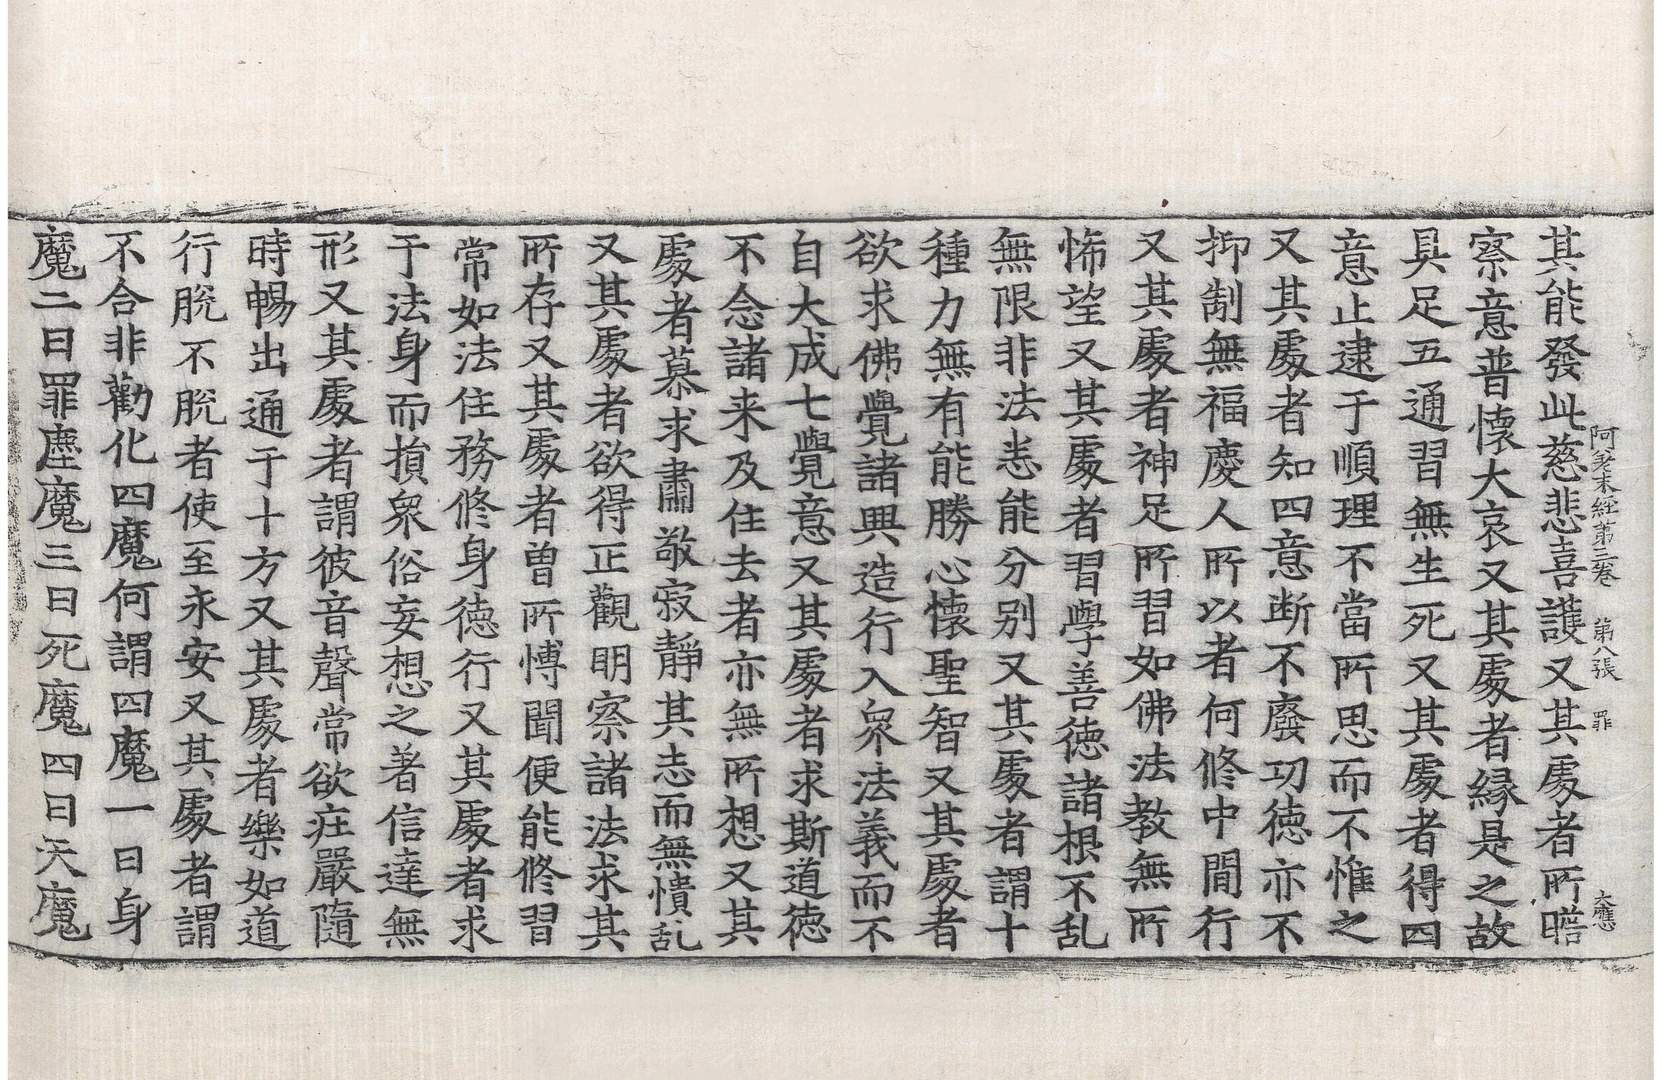 阿差末經第三卷　第八張　罪　大應
其能發此慈悲喜護又其處者所瞻
察意普懷大哀又其處者縁是之故
具足五通習無生死又其處者得四
意止逮于順理不當所思而不惟之
又其處者知四意断不廢功徳亦不
抑制無福慶人所以者何修中間行
又其處者神足所習如佛法教無所
悕望又其處者習學善徳諸根不乱
無限非法恙能分别又其處者謂十
種力無有能勝心懷聖智又其處者
欲求佛覺諸興造行入衆法義而不
自大成七覺意又其處者求斯道徳
不念諸来及住去者亦無所想又其
處者慕求肅敬寂靜其志而無憒乱
又其處者欲得正觀明察諸法求其
所存又其處者曽所博聞便能修習
常如法住務修身徳行又其處者求
于法身而損衆俗妄想之著信達無
形又其處者謂彼音聲常欲莊嚴隨
時暢出通于十方又其處者樂如道
行脫不脫者使至永安又其處者謂
不合非勸化四魔何謂四魔一曰身
魔二曰罪塵魔三曰死魔四曰天魔